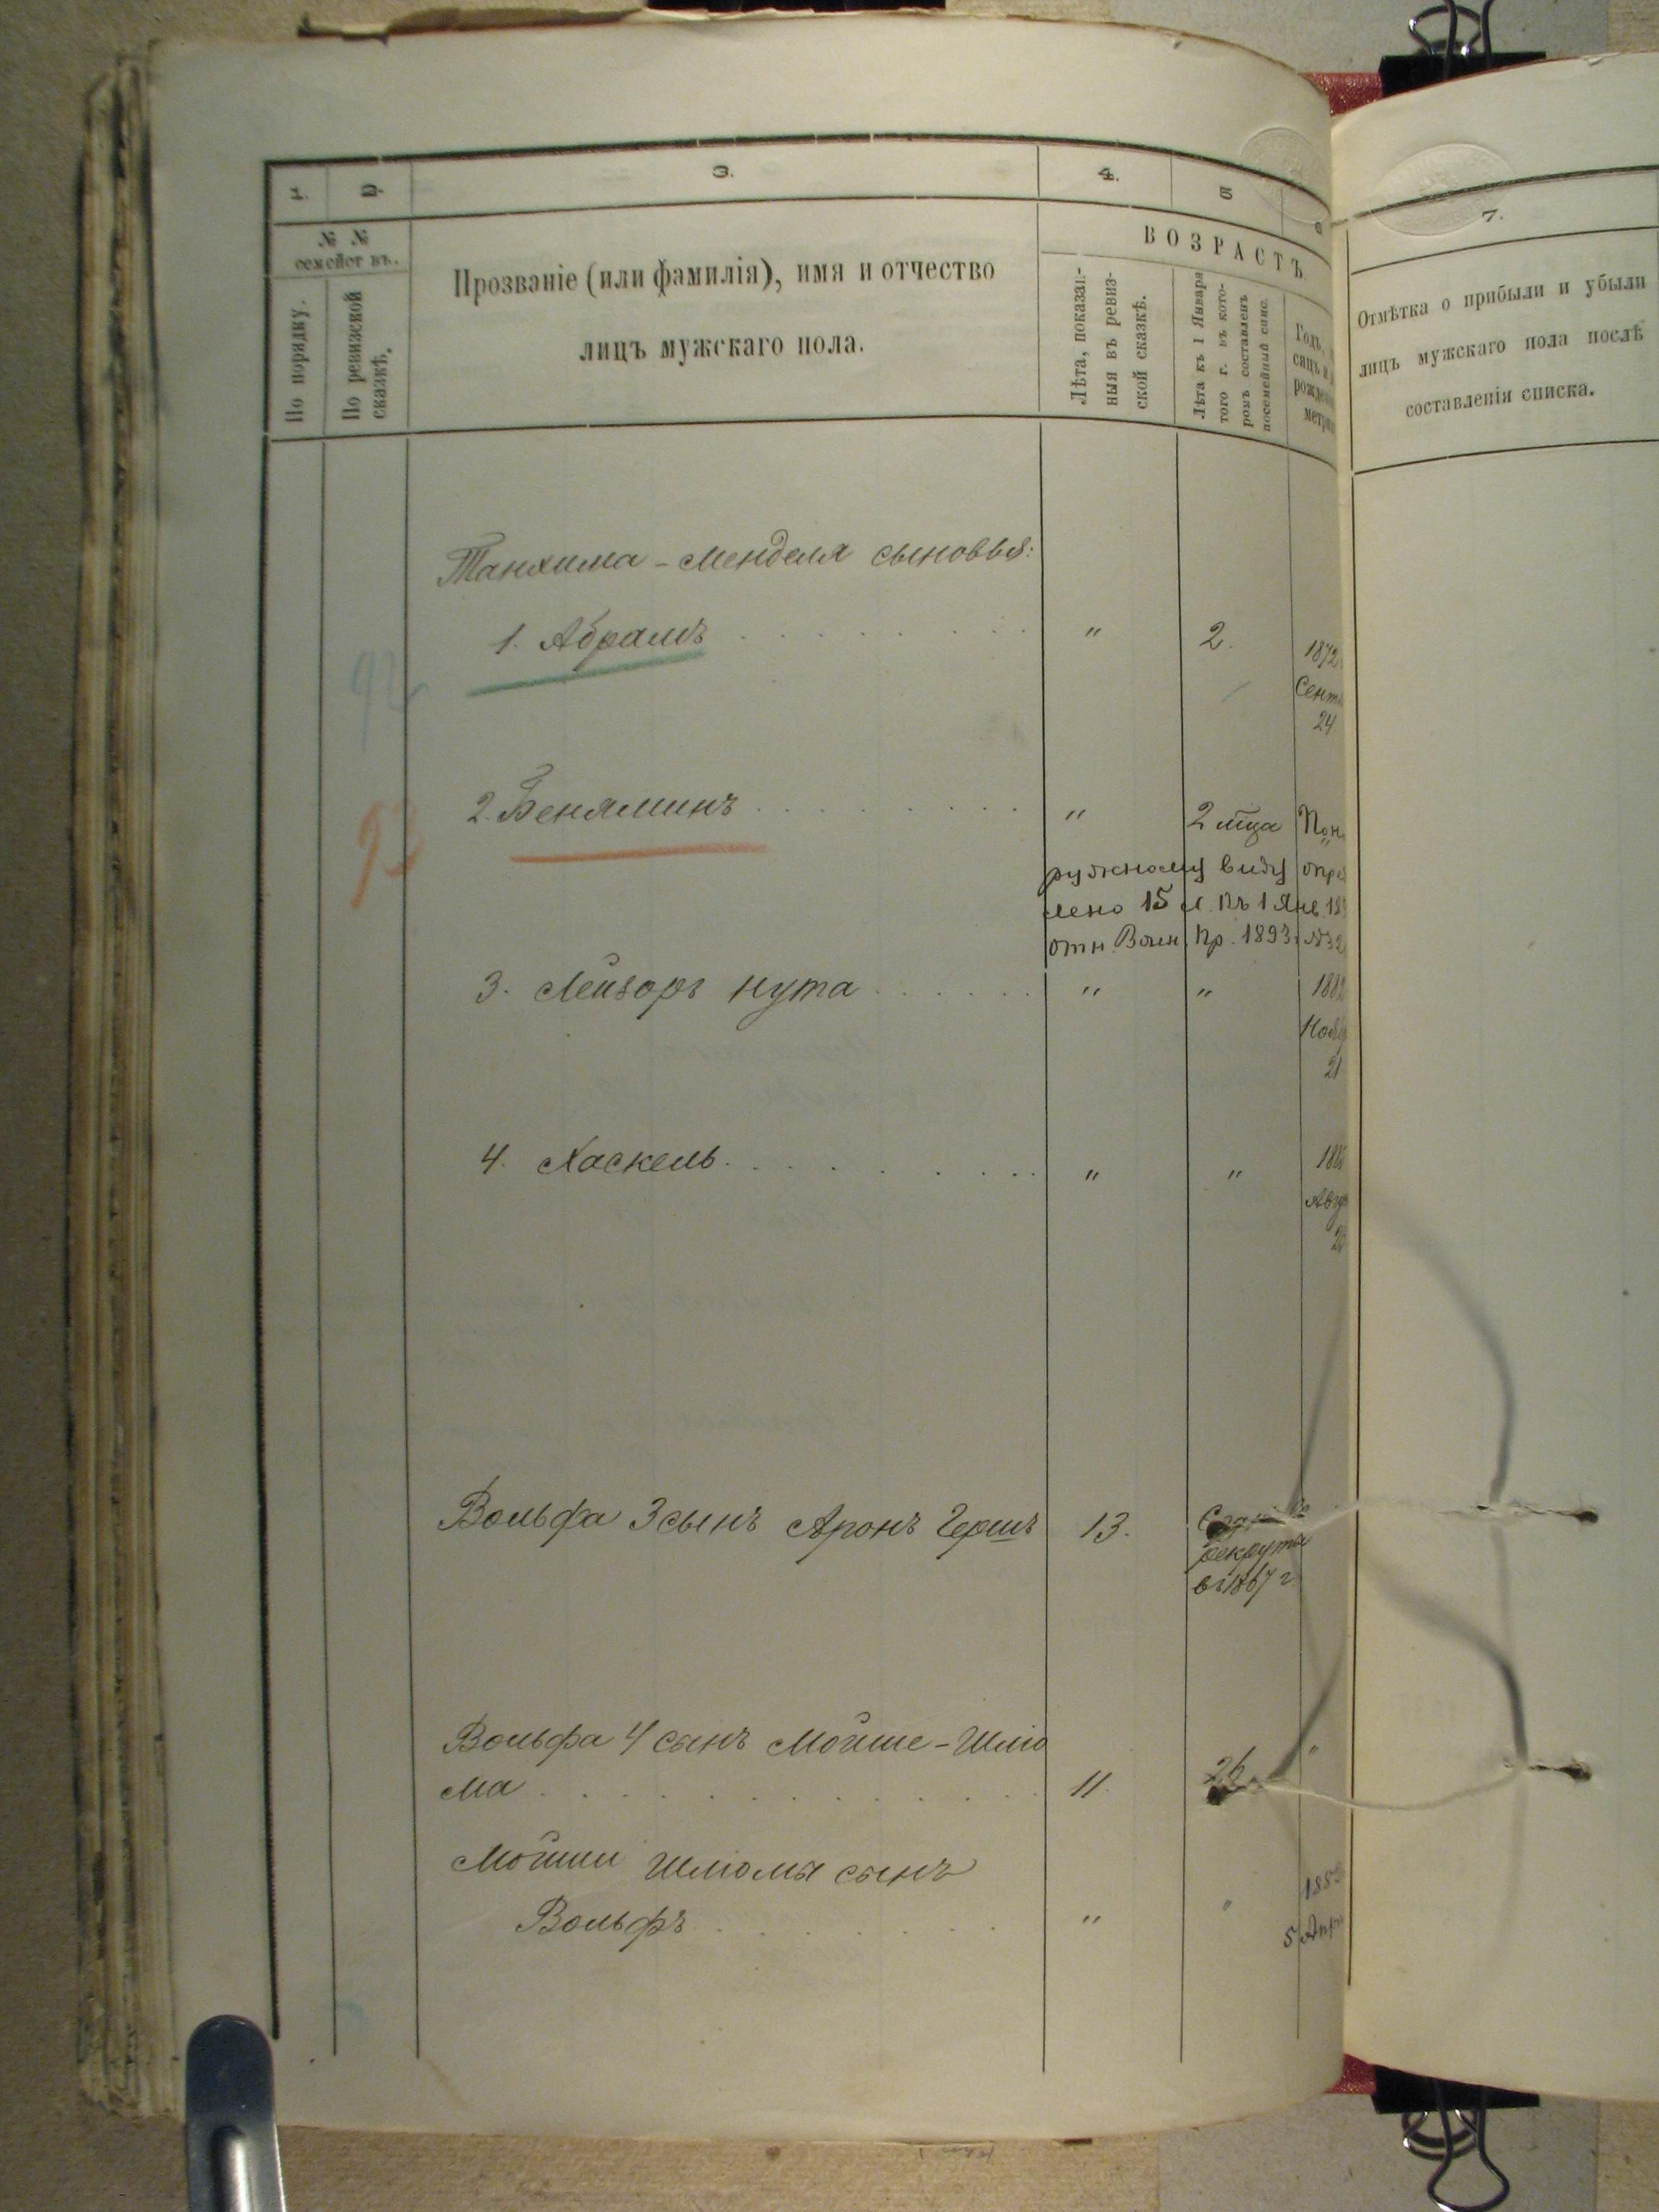 1. 2. 3. 4. 5 6 7.
№ № семействъ.
По порядку.
По ревизской сказкѣ.
Прозваніе (или фамилія), имя и отчество
лицъ мужскаго пола.
ВОЗРАСТЪ
Лѣта, показан-
ныя въ ревиз-
ской сказкѣ.
Лѣта къ 1 Января
того г. въ кото-
ромъ составленъ
посемейный спис.
Годъ,
сяцъ и
рожде
метри
Отмѣтка о прибыли и убыли
лицъ мужскаго пола послѣ
составленія списка.
Танхима - Менделя сыновья:
1. Абрамъ " 2. 1872
Сент
24
92
2. Беняминъ " 2 мца По н
93
ружному виду опре
лено 15 л. къ 1 Янв. 18
отн. Воен. Пр. 1893 г. № 32
3. Лейзоръ Нута " " 1882
Нояб
21
4. Хаскель " " 188
Авг
2
Вольфа 3 сынъ Аронъ Гершъ 13. Сданъ въ
рекруты
въ 1867 г.
Вольфа 4 сынъ Мойше-Шлio
ма 11. 26 "
Мойши Шліомы сынъ
Вольфъ " " 188
5 Апр